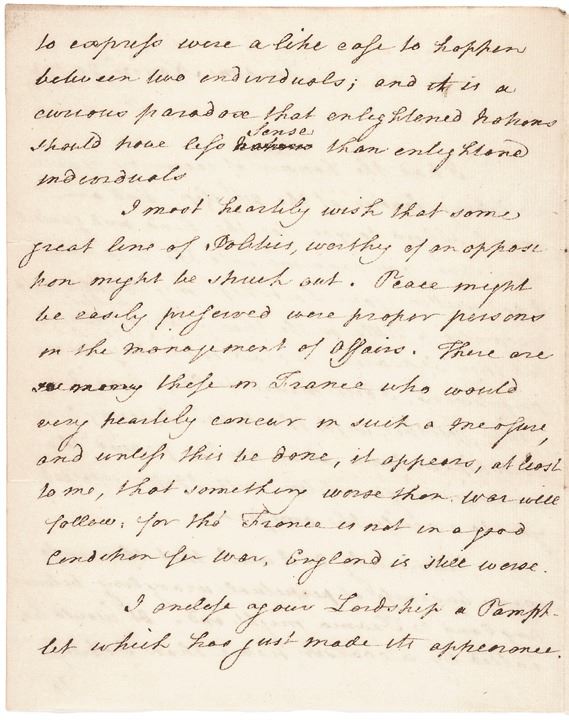 to express were a like case to happen
between two individuals; and it is a
curious paradox that enlightened nations
should have less Sense than enlightend
individuals
I most heartily wish that some
great line of Politics, worthy of an opposi
tion might be struck out. Peace might
be easily preserved were proper persons
in the management of Affairs. There are
so many these in France who would
very heartily concur in such a measure,
and unless this be done, it appears, at least
to me, that something worse than war will
follow; for tho' France is not in a good
Condition for war, England is still worse.
I enclose your Lordship a Pamph-
let which has just made its appearance.